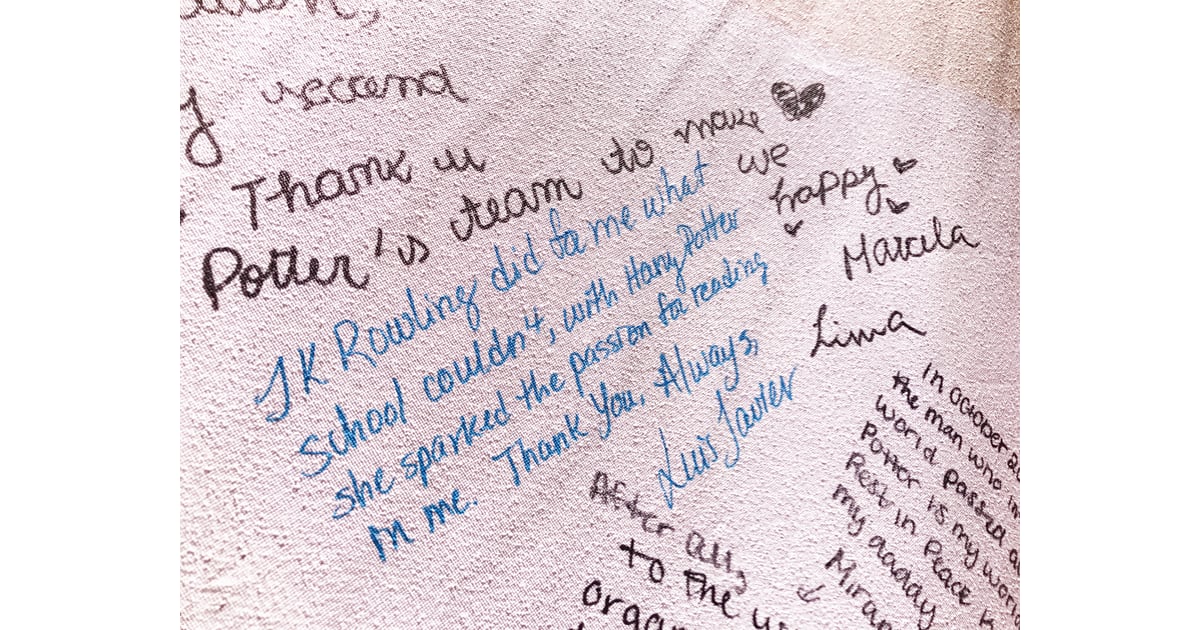 y second
Thank u
Potter's team to make
we
happy
Marcela
Lima
JK Rowling did to me what
school couldn't, with Harry Potter
she sparked the passion for reading
in me. Thank You, Always,
Luis Javier
In october
the man who
world passed
Potter is my
Rest in Peace
my daddy
After all,
to the